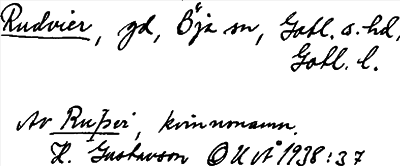 Rudvier, gd, Böja sn, Gotl. s. hd,
Gotl. l.
Av Ruþvi, kvinnonamn.
H. Gustavson OUÅ 1938:37